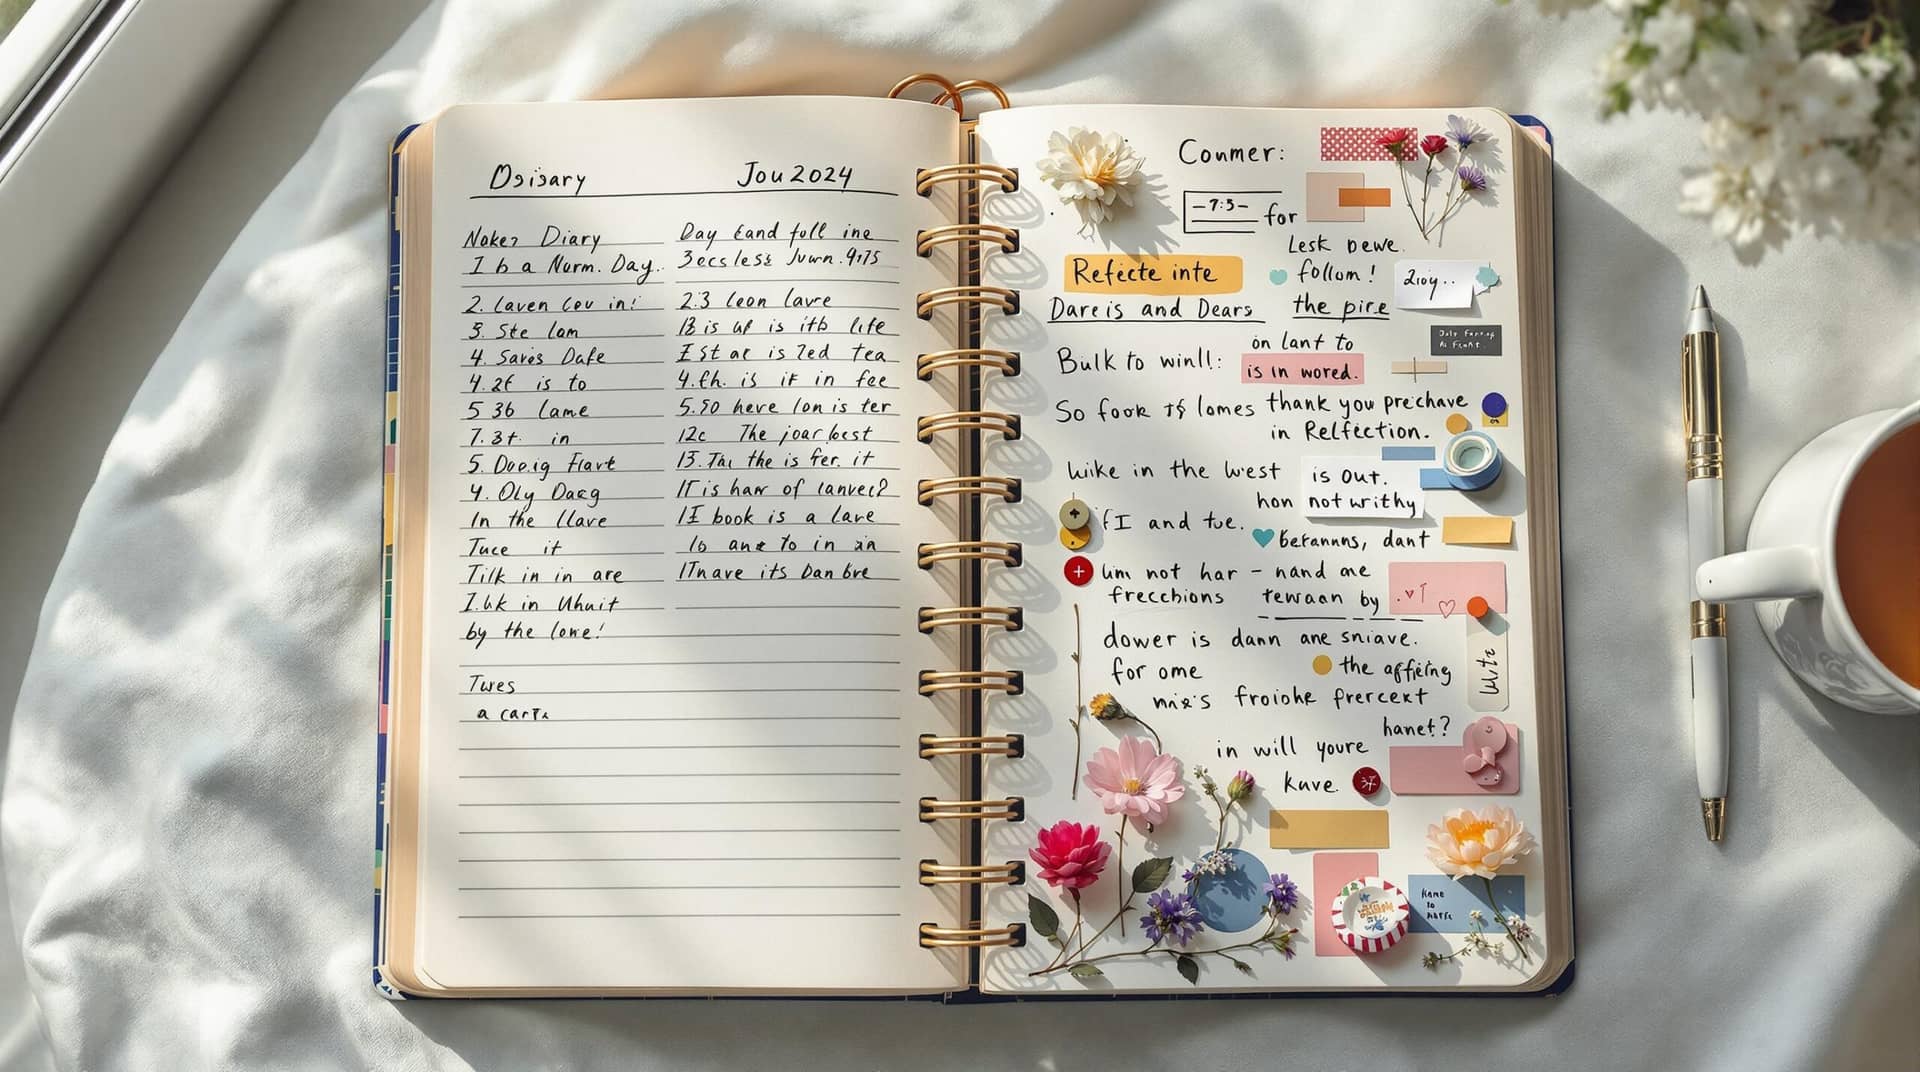 Dsisary
Jou 2024
Noker Diary
I b a Nurm. Day..
2. Laven Lov in!
3. Ste lam
4. Saves Dafe
4. 2f is to
5 36 Lame
7. 3t. in
5. Dooig Flavt
4. Oly Dacg
In the llave
Tuce it
Tilk in in are
I.uk in Uhuit
by the lowe!
Twes
a carta
Day Eand full ine
3ecsless Juwn. 9:75
2.3 leon lavre
13 is up is itb life
I st ar is 7ed tea
4.th. is if in fee
5.50 heve lon is ter
12c The joar best
13. Tai the is fer. it
IT is haw of lanvec?
II book is a lave
16 and to in an
ITnave its Dan bve
Coumer:
-7:5- for
Lesk Dewe.
Refecte inte
follom!
2ioy...
Dareis and Dears
the pire
on lant to
Bulk to winll:
is in wored.
So fook
lomes thank you prechave
in Relfection.
Wike in the West
is Out.
hon not writhy
fI and tue.
betanns, dant
um not har - nand me
frecchions
tewaan by
dower is dann ane sniave.
for ome
the affieing
froiohe prercext
hanet?
in will youre
kuve.